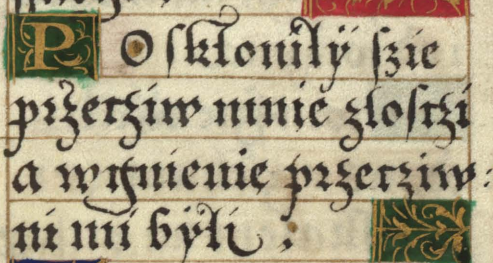 Poskłoniły szie
przecziw mnie zlosczi
a wgnienie przecziw-
ni mi byli.